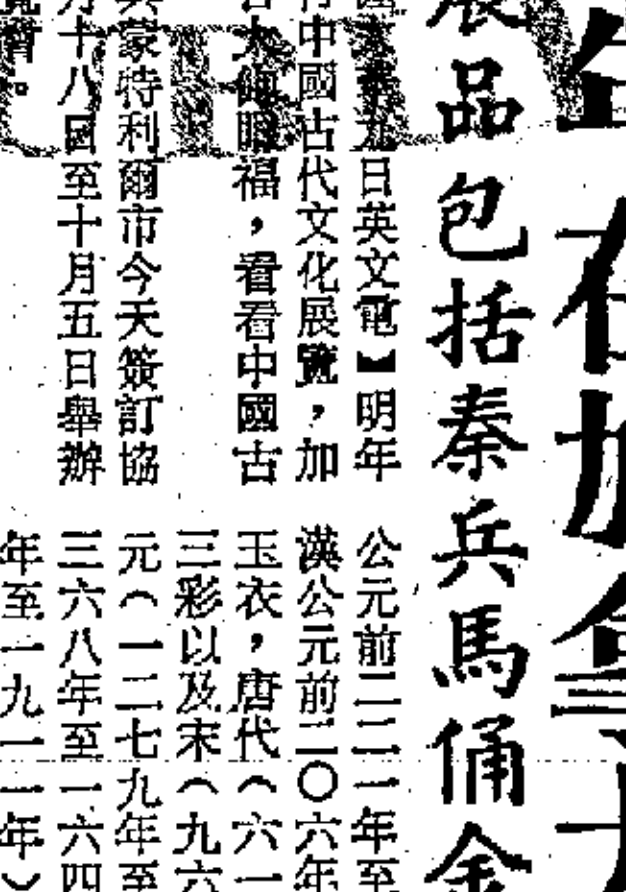 在加拿大
展品包括秦兵馬俑金
九日英文電】明年
中國古代文化展覽，加
大飽眼福，看看中國古
蒙特利爾市今天簽訂協
十八日至十月五日舉辦
覽會。
公元前二二一年至
漢公元前二〇六年
玉衣，唐代（六一
三彩以及宋（九六
元（一二七九年至
三六八年至一六四
年至一九一一年）